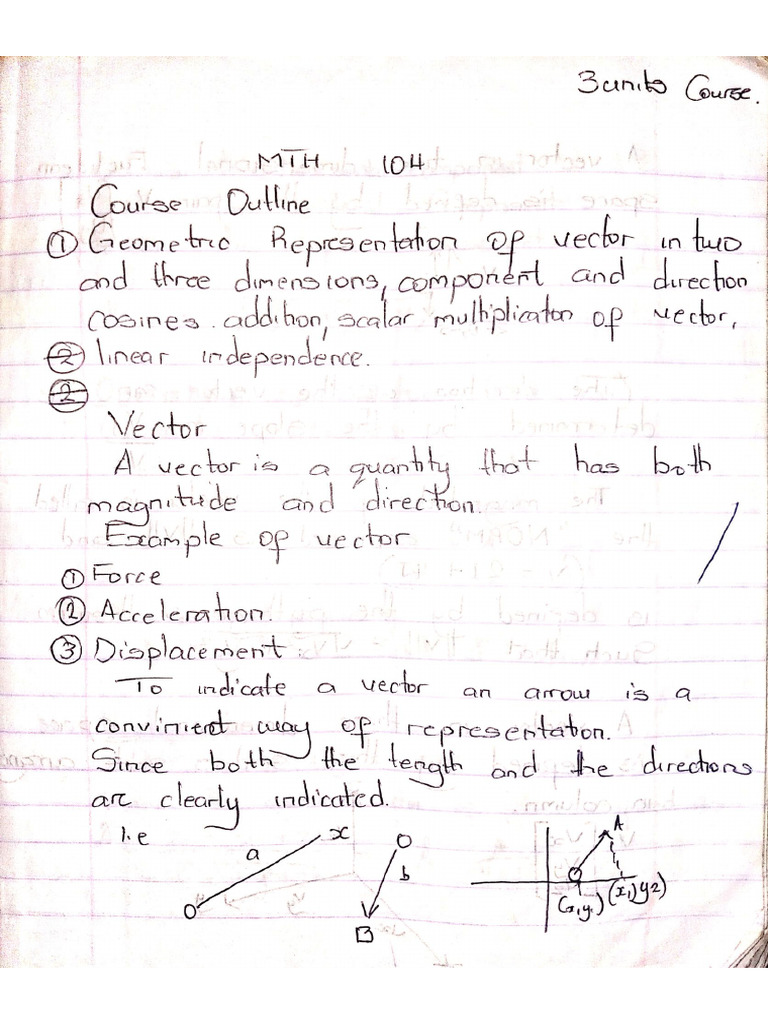 3units Course.
MTH 104
Course Outline
① Geometric Representation of vector in two
and three dimensions, component and direction
cosines. addition, scalar multiplicaton of vector,
② linear independence.
②
Vector
A vector is a quantity that has both
magnitude and direction.
Example of vector
① Force
② Acceleration.
③ Displacement.
To indicate a vector an arrow is a
convinient way of representation.
Since both the length and the directions
are clearly indicated.
i.e
a x
O
O
b
B
A
(x,y,) (x,)y2)